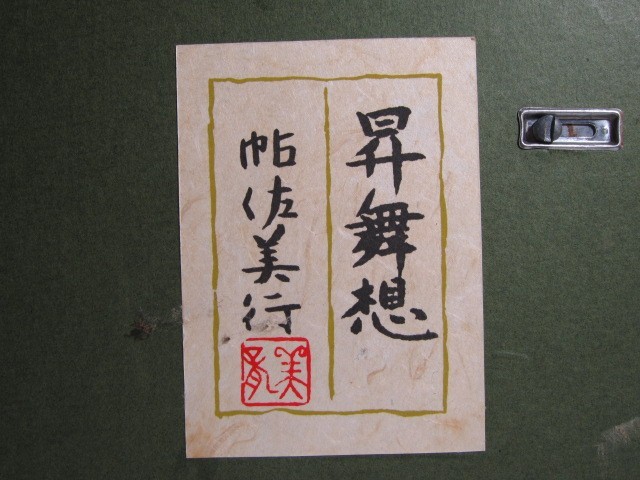 昇舞想
帖佐美行